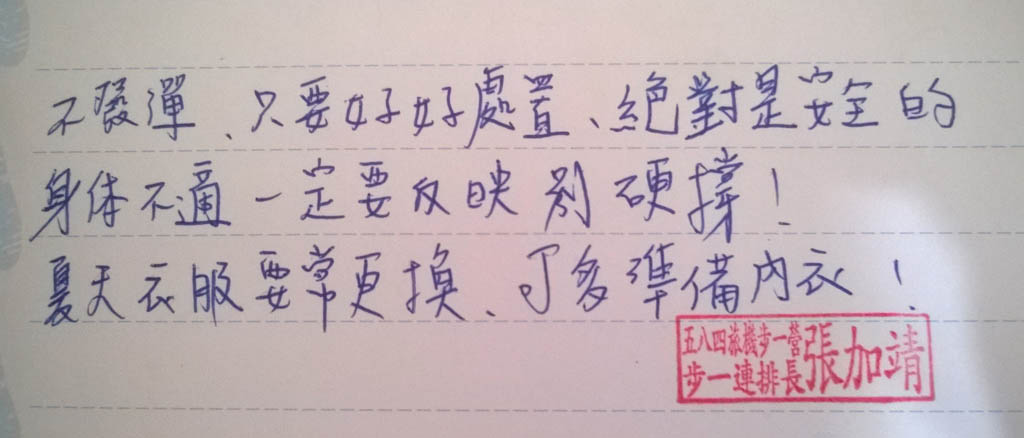 不發彈、只要好好處置、絕對是安全的
身体不適一定要反映別硬撐！
夏天衣服要常更換、可多準備內衣！
五八四旅機步一營
步一連排長張加靖